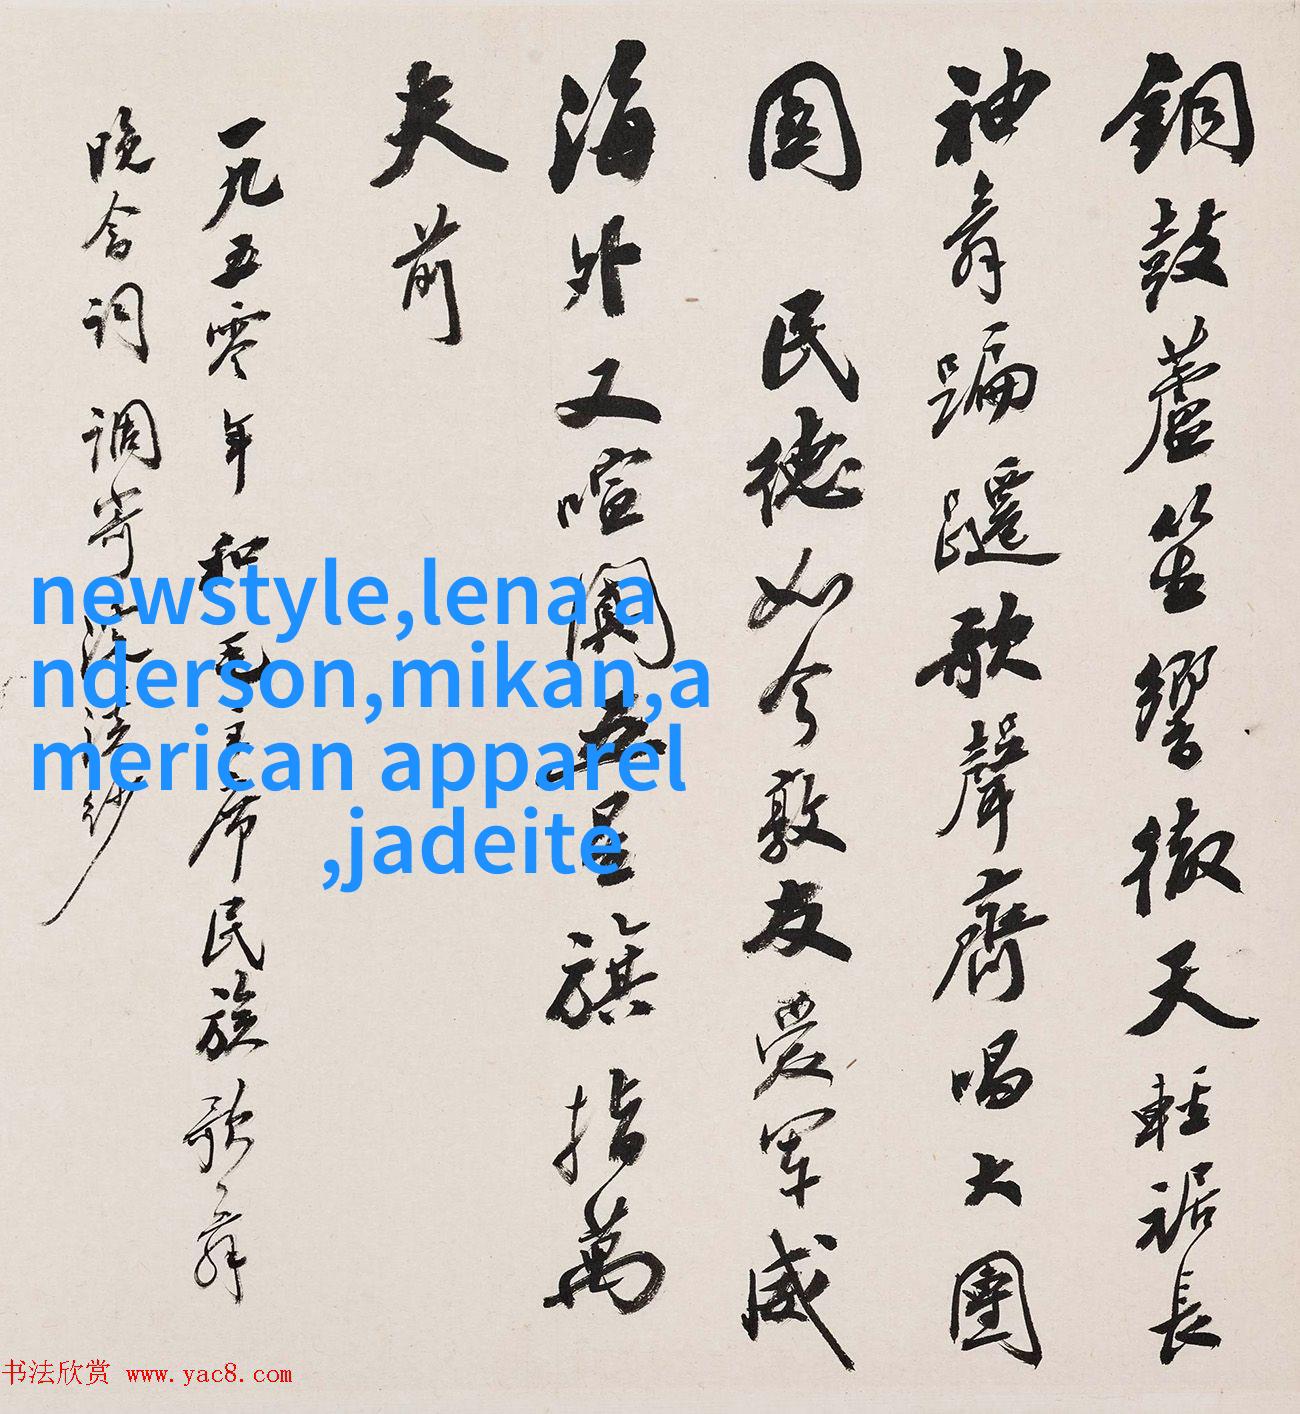 銅鼓蘆笙響徹天輕裾長
袖舞蹁躚歌聲齊唱大團
圆 民德如今敦友愛軍威
海外又喧闐五星旗指萬
夫前
一九五零年 和毛主席民族歌舞
晚會词 调寄浣溪纱
newstyle,lena a
nderson,mikan,a
merican apparel
,jadeite
书法欣赏 www.yac8.com